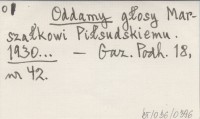 01
Oddamy głosy Mar-
szałkowi Piłsudskiemu.
1930... — Gaz. Podh. 18,
nr 42.